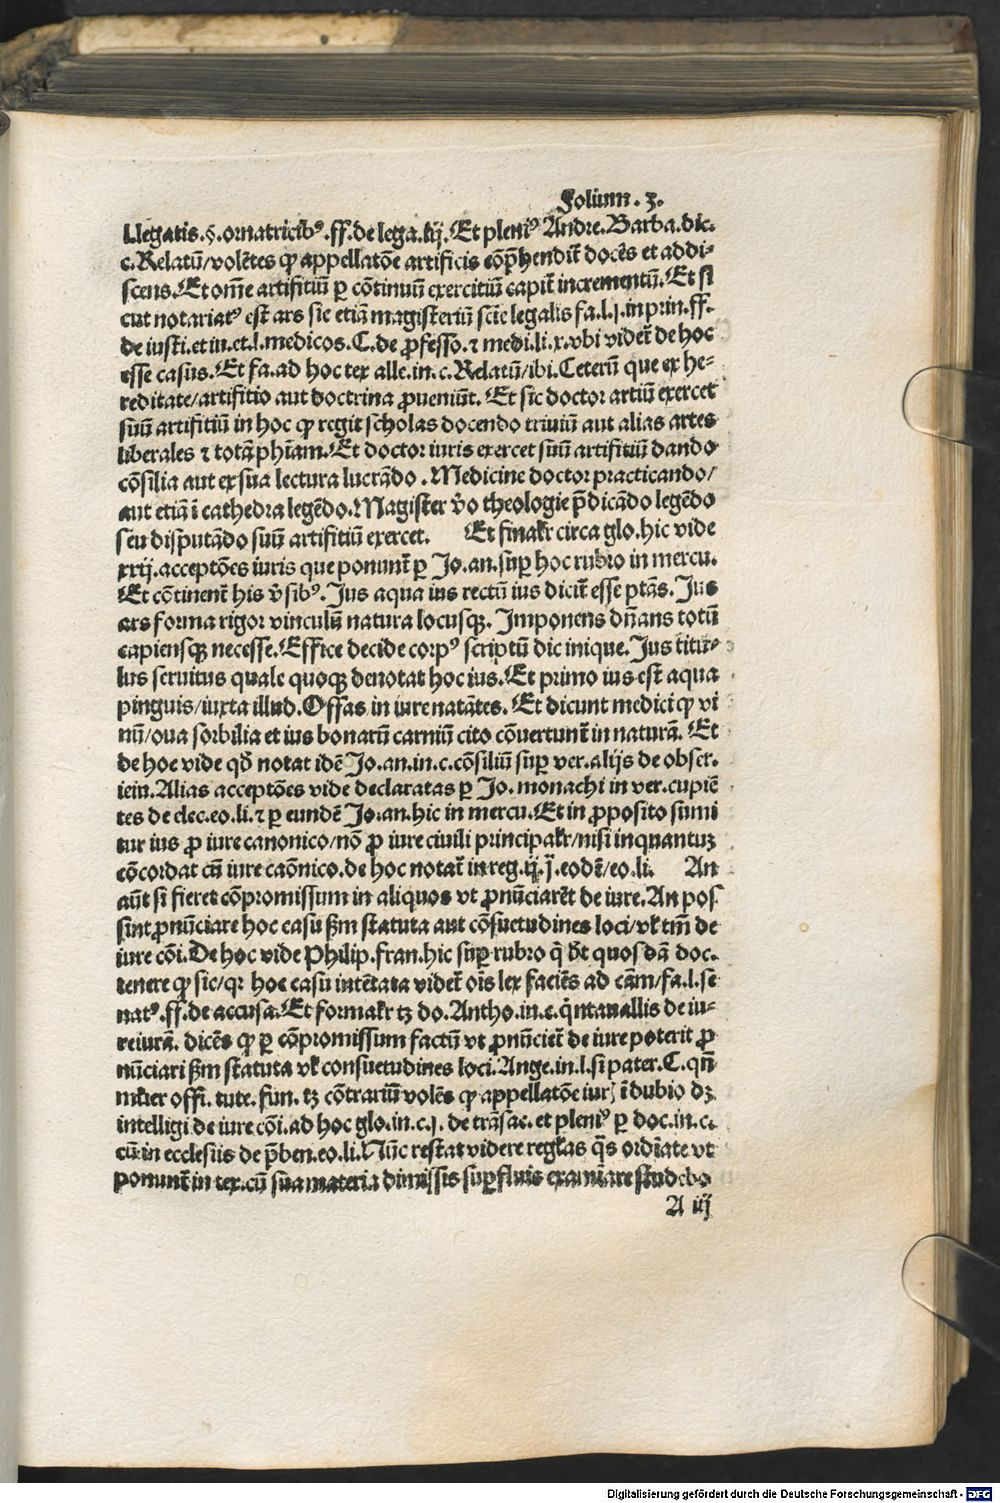 Folium . 3.
Llegatis.§.ornatricibꝰ.ff.de lega.iij.Et pleniꝰ Andre.Barba.dic.
c.Relatū/volētes ꝙ appellatōe artificis cōp̄hendit᷑ docēs et addi⸗
scens.Et om̄e artifitiū ꝑ cōtinuū exercitiū capit᷑ incrementū.Et si
cut notariatꝰ est ars sic etiā magisteriū scīe legalis fa.l.j.in prin.ff.
de iusti.et iu.et.l.medicos.C.de ꝓfesso.⁊ medi.li.x.vbi videt᷑ de hoc
esse casus.Et fa.ad hoc tex alle.in.c.Relatū/ibi.Ceterū que ex he⸗
reditate/artifitio aut doctrina ꝓueniūt. Et sic doctor artiū exercet
suū artifitiū in hoc ꝙ regit scholas docendo triuiū aut alias artes
liberales ⁊ totā ph̄iam.Et doctor iuris exercet suū artifitiū dando
cōsilia aut ex sua lectura lucrādo . Medicine doctor practicando/
aut etiā ī cathedra legēdo.Magister v̄o theologie p̄dicādo legēdo
seu disputādo suū artifitiū exercet. Et finalr̄ circa glo.hic vide
xxij.acceptōes iuris que ponunt᷑ ꝑ Jo.an.suꝑ hoc rubro in mercu.
Et cōtinent᷑ his v̄sibꝰ. Jus aqua ius rectū ius dicit᷑ esse ptās. Jus
ars forma rigor vinculū natura locusqꝫ. Imponens dn̄ans totū
capiensqꝫ necesse.Effice decide corpꝰ scriptū dic inique.Jus titu⸗
lus seruitus quale quoqꝫ denotat hoc ius.Et primo ius est aqua
pinguis/iuxta illud.Offas in iure natātes. Et dicunt medici ꝙ vi
nū/oua sorbilia et ius bonarū carniū cito cōuertunt᷑ in naturā. Et
de hoc vide qd̄ notat idē Jo.an.in.c.cōsiliū suꝑ ver.alijs de obser.
ieiu.Alias acceptōes vide declaratas ꝑ Jo. monachi in ver.cupiē
tes de elec.eo.li.⁊ ꝑ eundē Jo.an.hic in mercu.Et in ꝓposito sumi
tur ius ꝓ iure canonico/nō ꝓ iure ciuili principalr̄/nisi inquantuꝫ
cōcordat cū iure caōnico.de hoc notat᷑ in reg.ij.j̄.eodē/eo.li. An
aūt si fieret cōpromissum in aliquos vt ꝓnūciarēt de iure.An pos
sint ꝓnūciare hoc casu ẜm statuta aut cōsuetudines loci/vl̄ tm̄ de
iure cōi.De hoc vide Philip.fran.hic suꝑ rubro q̄ dt̄ quosdā doc.
tenere ꝙ sic/qꝛ hoc casu intētata videt᷑ oīs lex faciēs ad cām/fa.l.se
natꝰ.ff.de accusa.Et formalr̄ tꝫ do.Antho.in.c.q̄ntauallis de iu⸗
reiurā. dicēs ꝙ ꝑ cōpromissum factū vt ꝓnūciet᷑ de iure poterit ꝓ
nūciari ẜm statuta vl̄ consuetudines loci.Ange.in.l.si pater.C.qn̄
ml̄ier offi. tute. fun. tꝫ cōtrariū volēs ꝙ appellatōe iurꝭ ī dubio dꝫ
intelligi de iure cōi.ad hoc glo.in.c.j. de trāsac. et pleniꝰ ꝑ doc.in.c.
cū in ecclesiis de p̄ben.eo.li.Nūc restat videre regl̄as q̄s ordīate vt
ponunt᷑ in tex.cū sua materia dimissis suꝑfluis examīare studebo
A iij
Digitalisierung gefördert durch die Deutsche Forschungsgemeinschaft - DFG